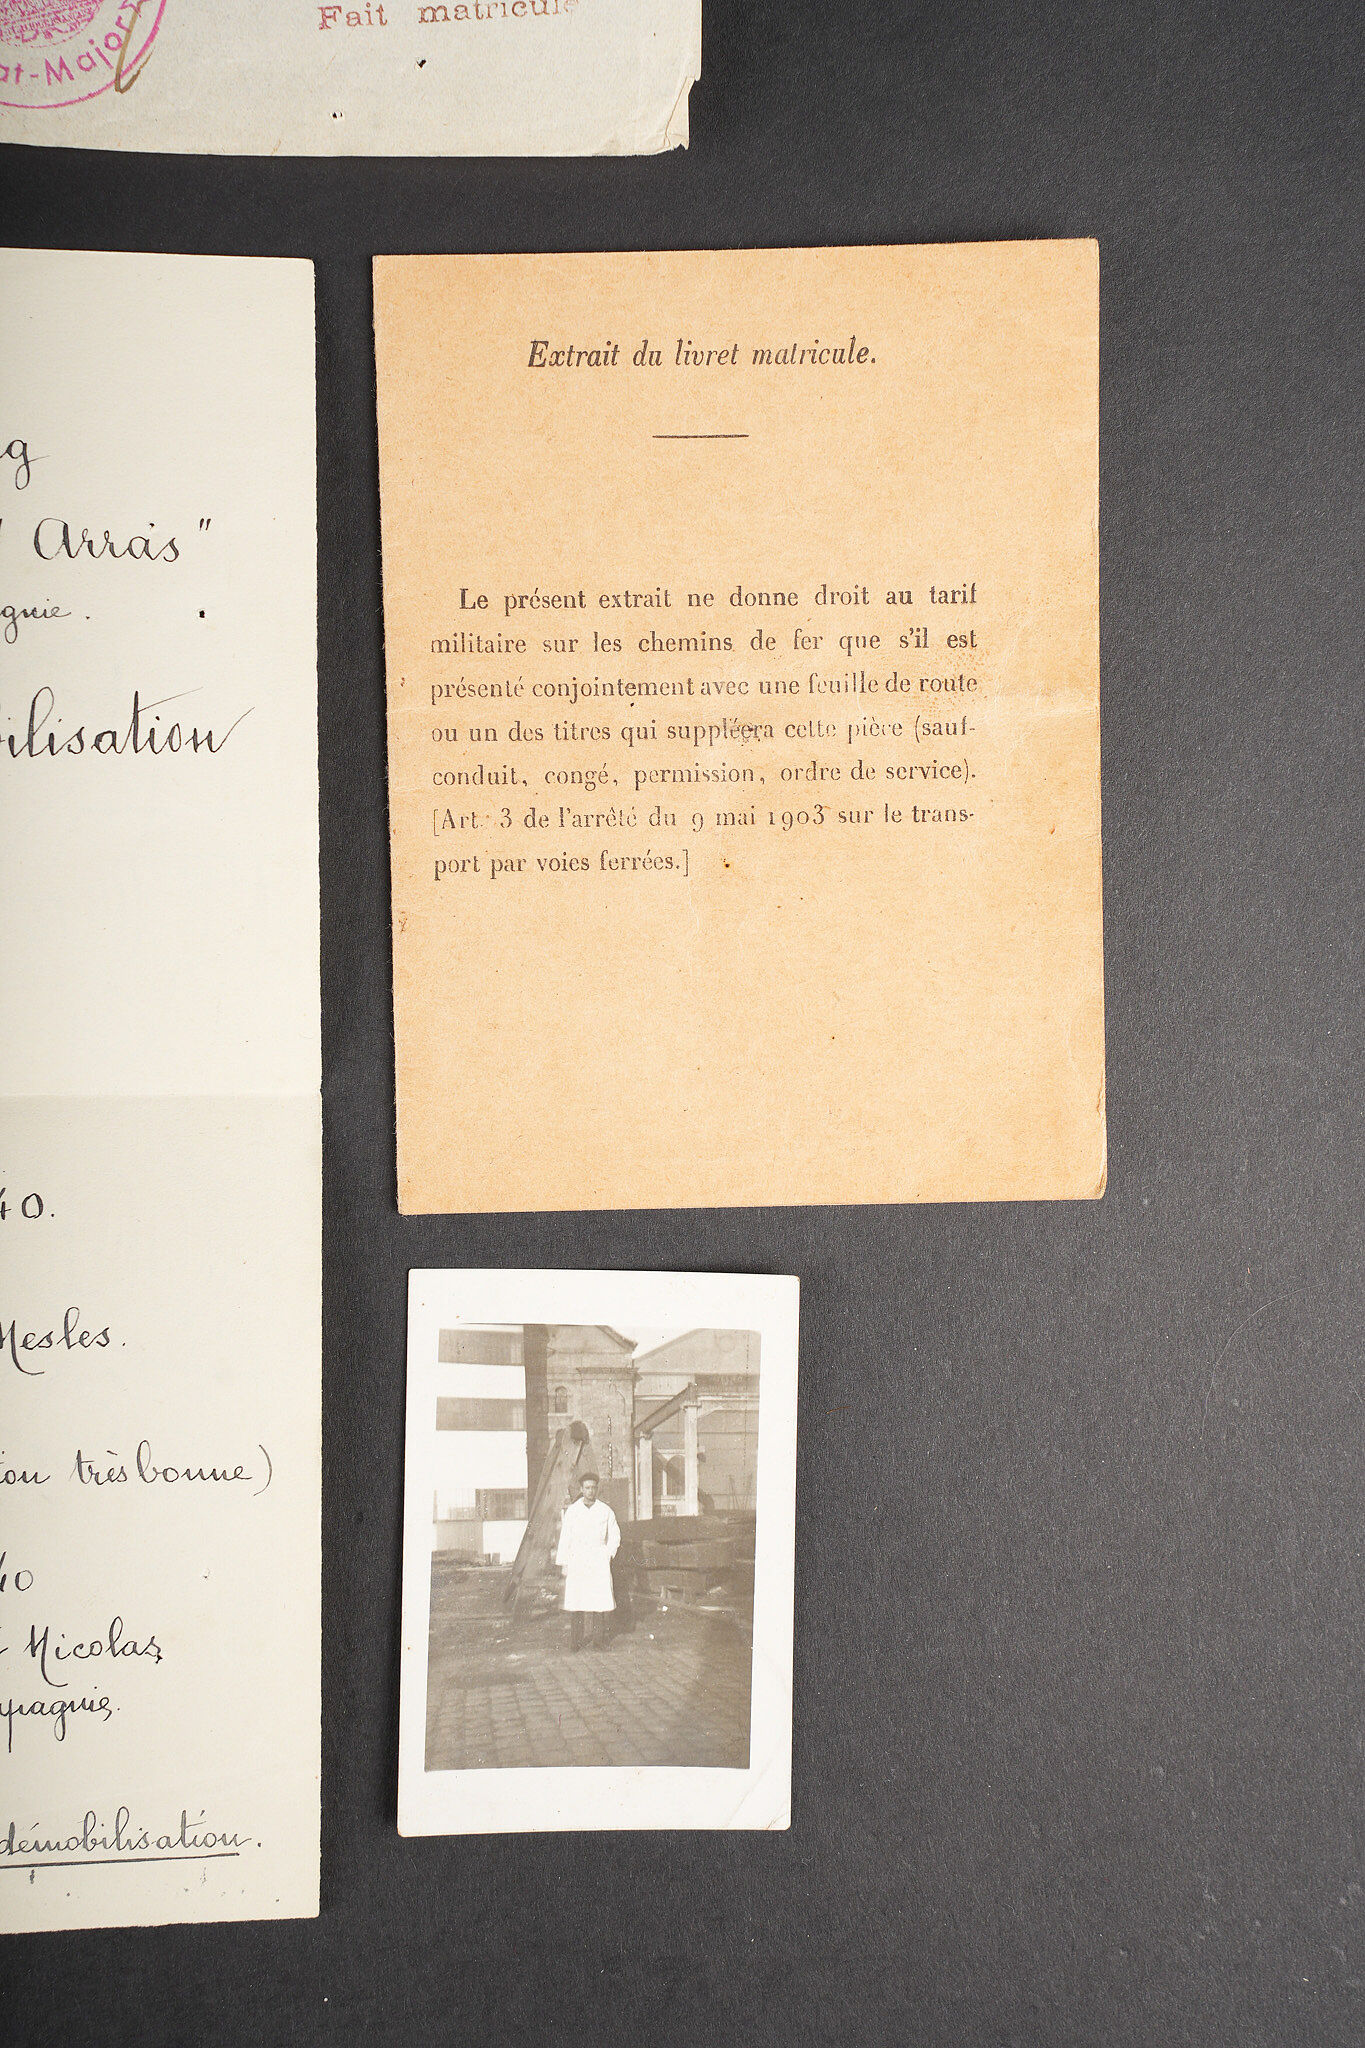 Fait matricule
at-Major
Arras"
bilisation
40.
Nesles.
très bonne)
40
Nicolas
démobilisation.
Extrait du livret matricule.
Le présent extrait ne donne droit au tarif
militaire sur les chemins de fer que s'il est
présenté conjointement avec une feuille de route
ou un des titres qui suppléera cette pièce (sauf-
conduit, congé, permission, ordre de service).
[Art. 3 de l'arrêté du 9 mai 1903 sur le trans-
port par voies ferrées.]